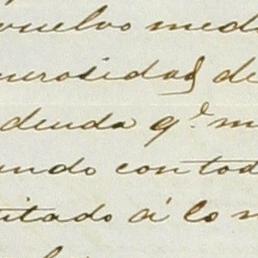 vuelvo med
nerosidad de
deuda q.e m
ando con tod
itado á lo m